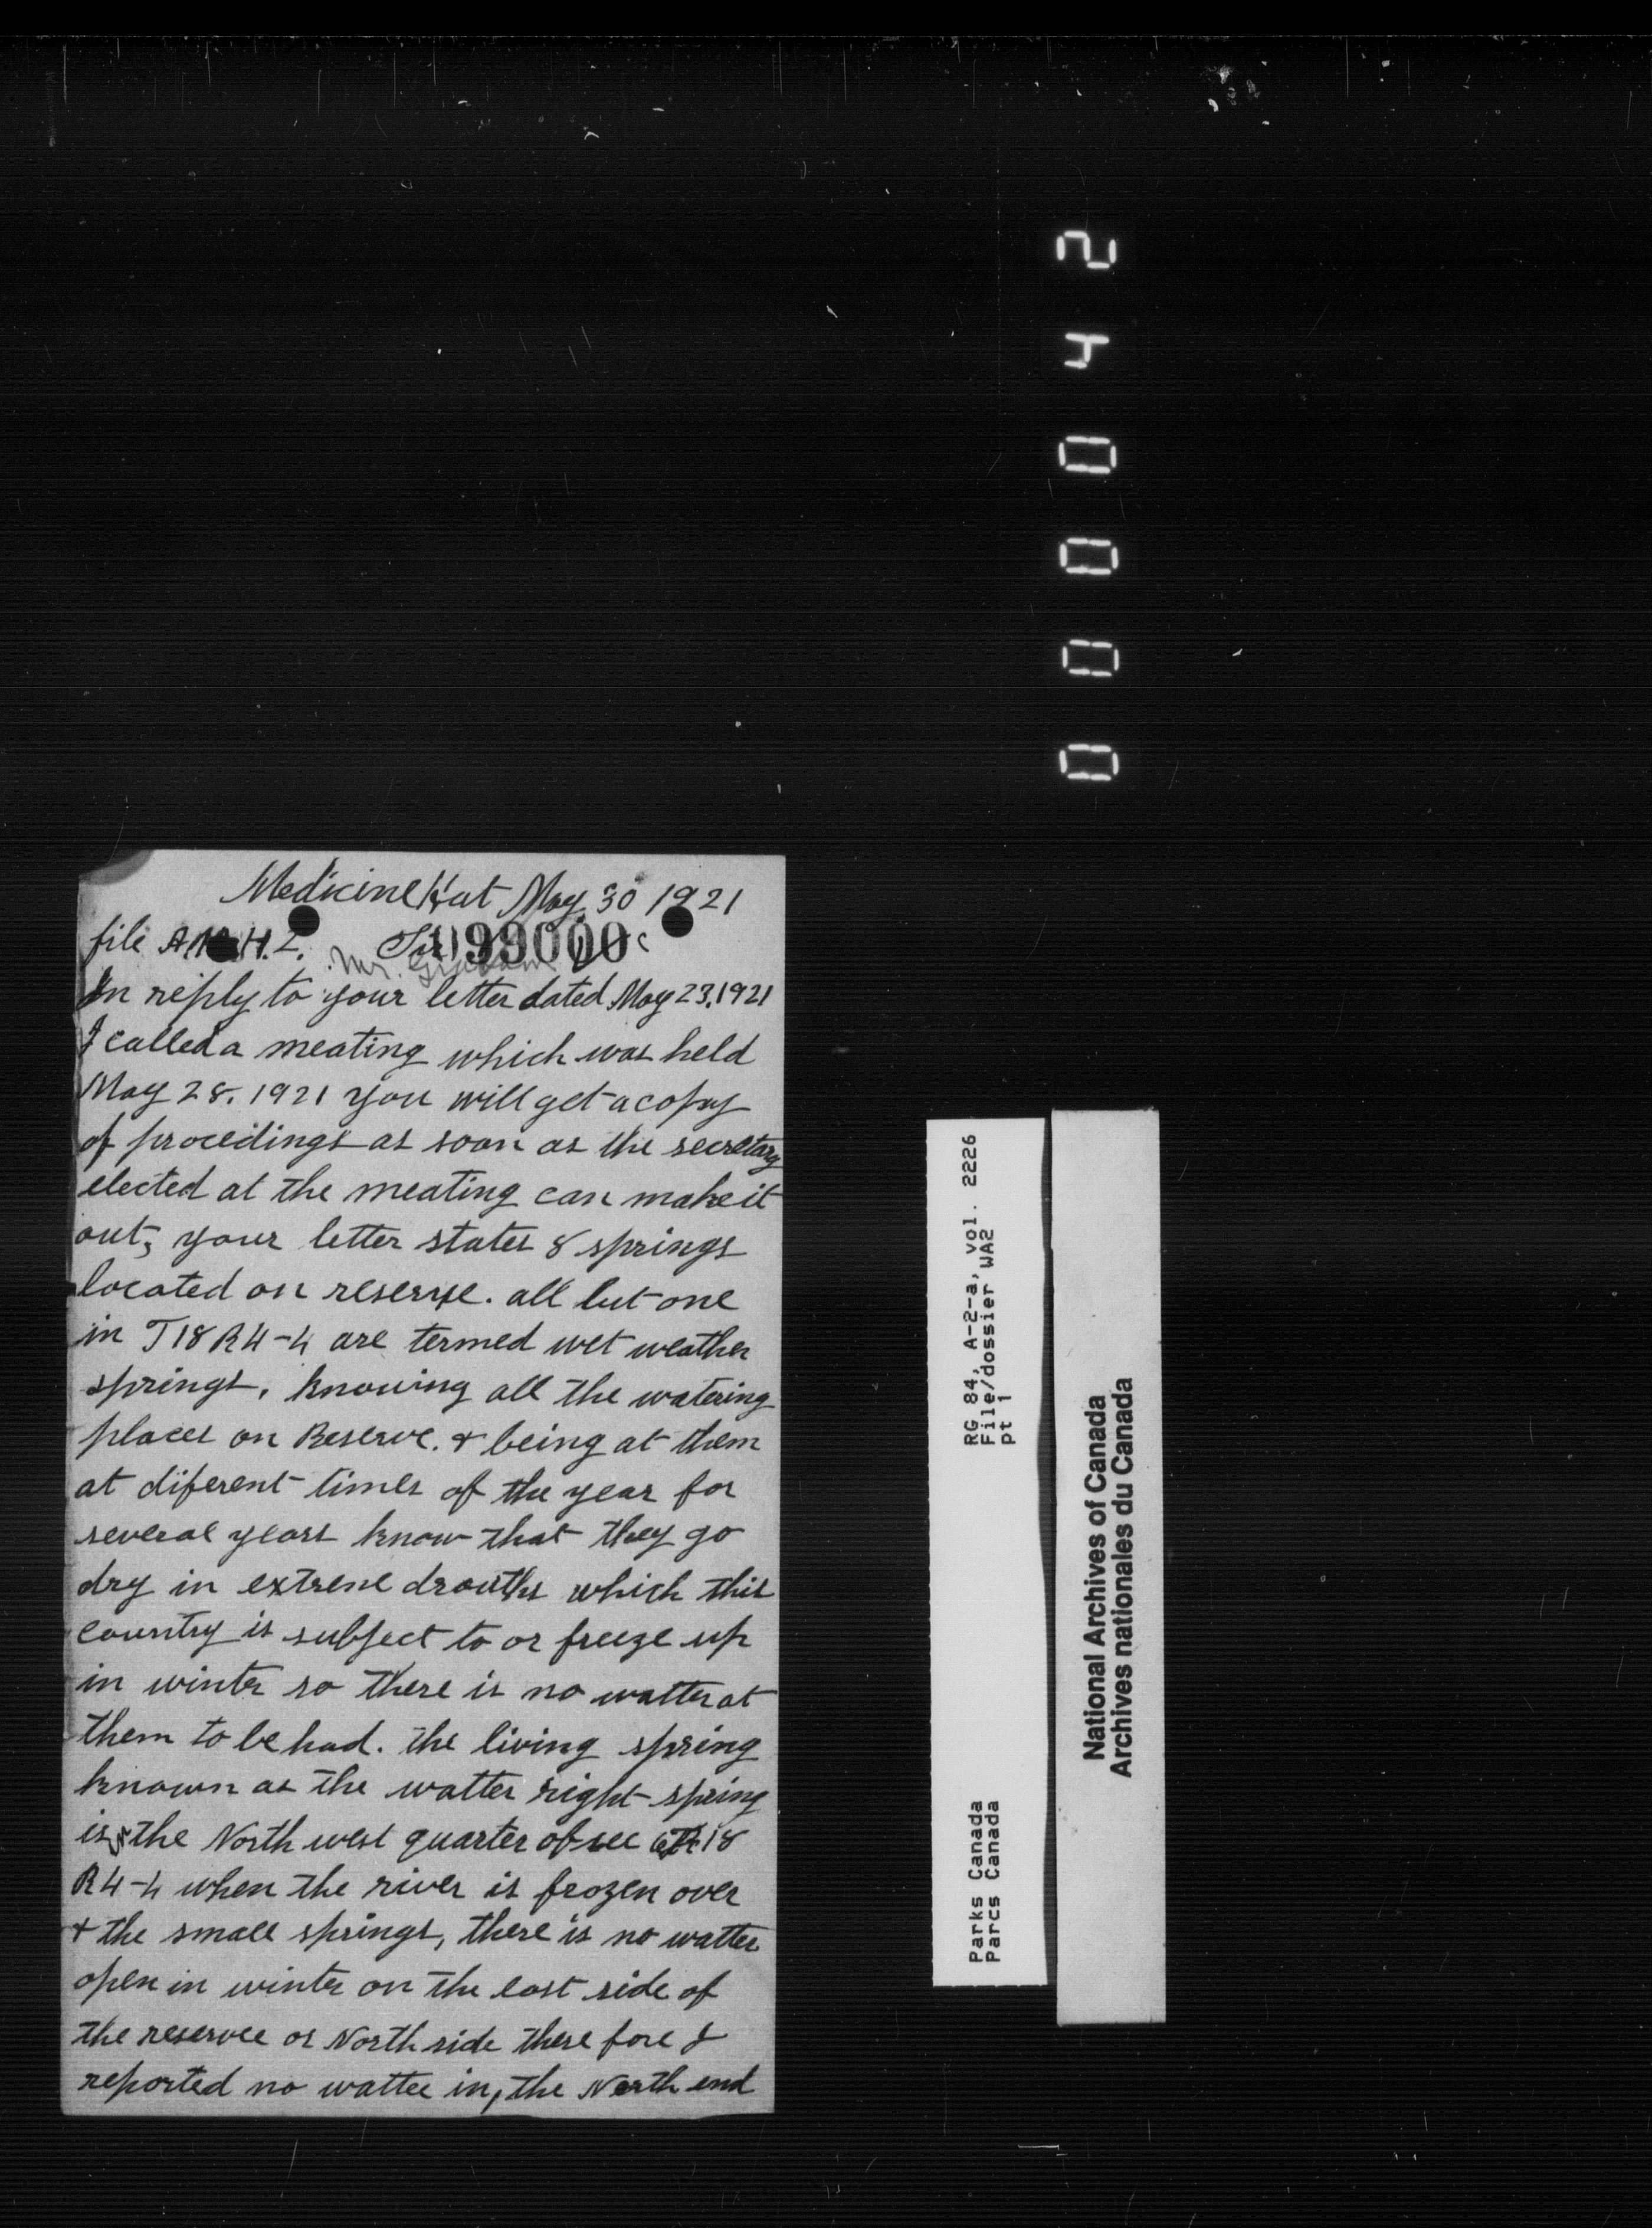 Medicine Hat May 30 1921
file H.2. Sir 099000
Mr. Graham
In reply to your letter dated May 23.1921
I called a meating which was held
May 28. 1921 you will get a copy
of procedings as soon as the secretary
elected at the meating can make it
out, your letter states 8 springs
located on reserve. all but one
in T18 R4-4 are termed wet weather
springs, knowing all the watering
places on Reserve. & being at them
at diferent times of the year for
several years know that they go
dry in extrene drouths which this
country is subject to or freeze up
in winter so there is no watter at
them to be had. The living spring
known as the watter right spring
is in the North west quarter of sec 6 18
R4-4 when the river is frozen over
& the small springs, there is no watter
open in winter on the east side of
the reservee or North side there fore I
reported no watter in, the North end
000042
RG 84, A-2-a, vol. 2226
File/dossier WA2
pt 1
Parks Canada
Parcs Canada
National Archives of Canada
Archives nationales du Canada